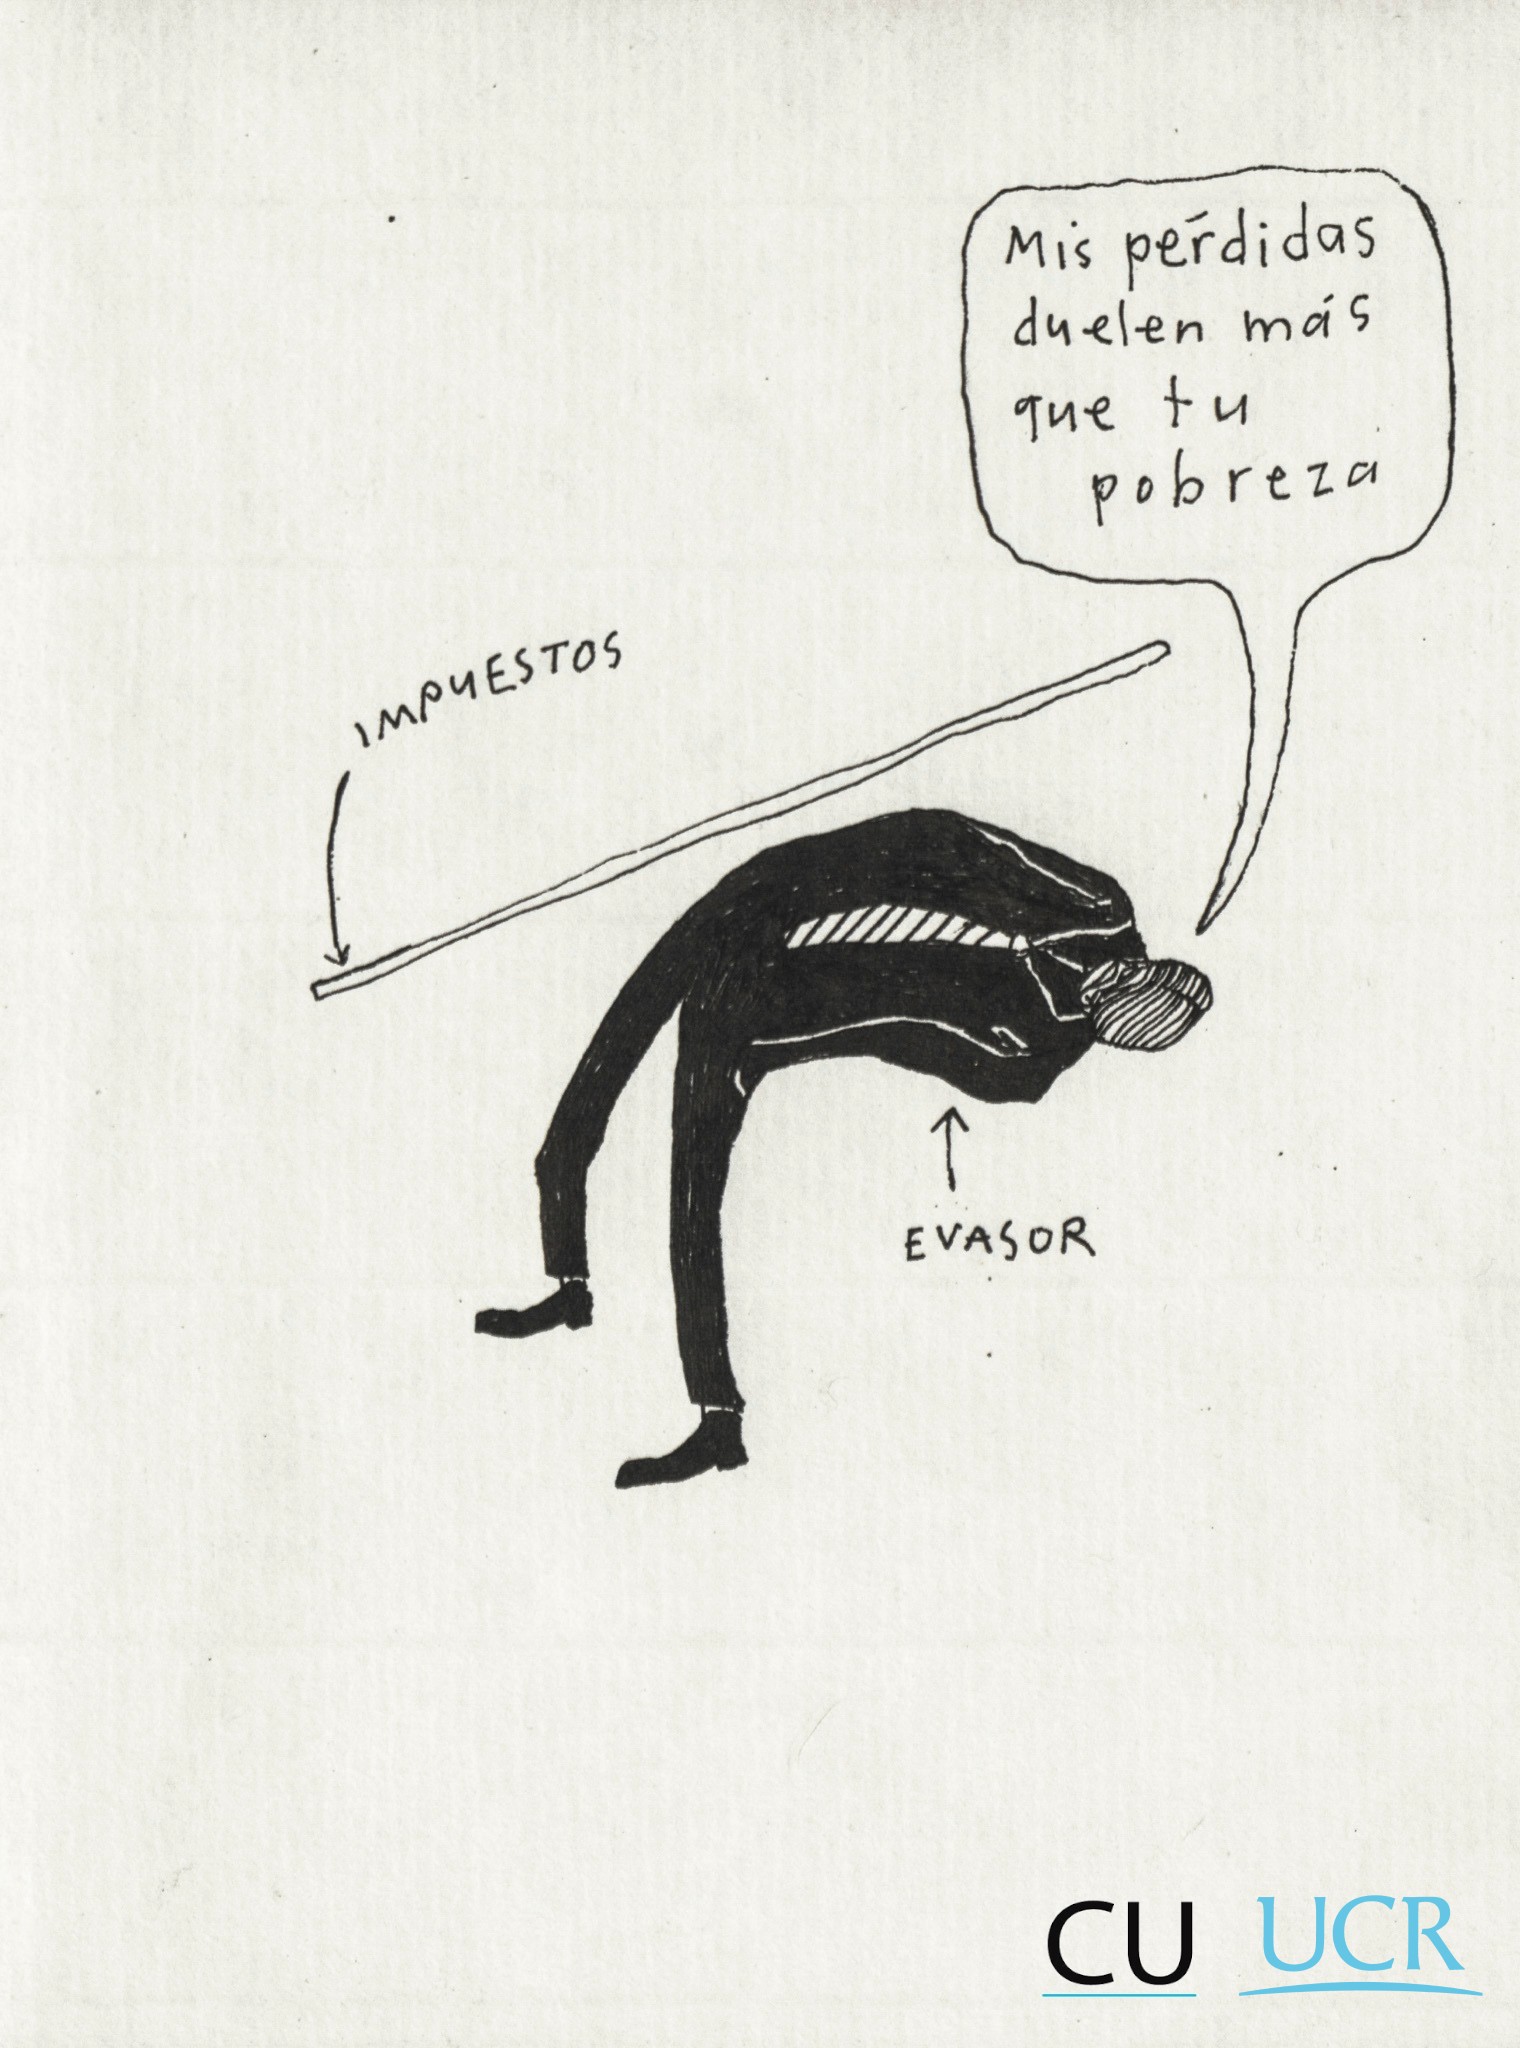 Mis pérdidas
duelen más
que tu
pobreza
IMPUESTOS
EVASOR
CU UCR